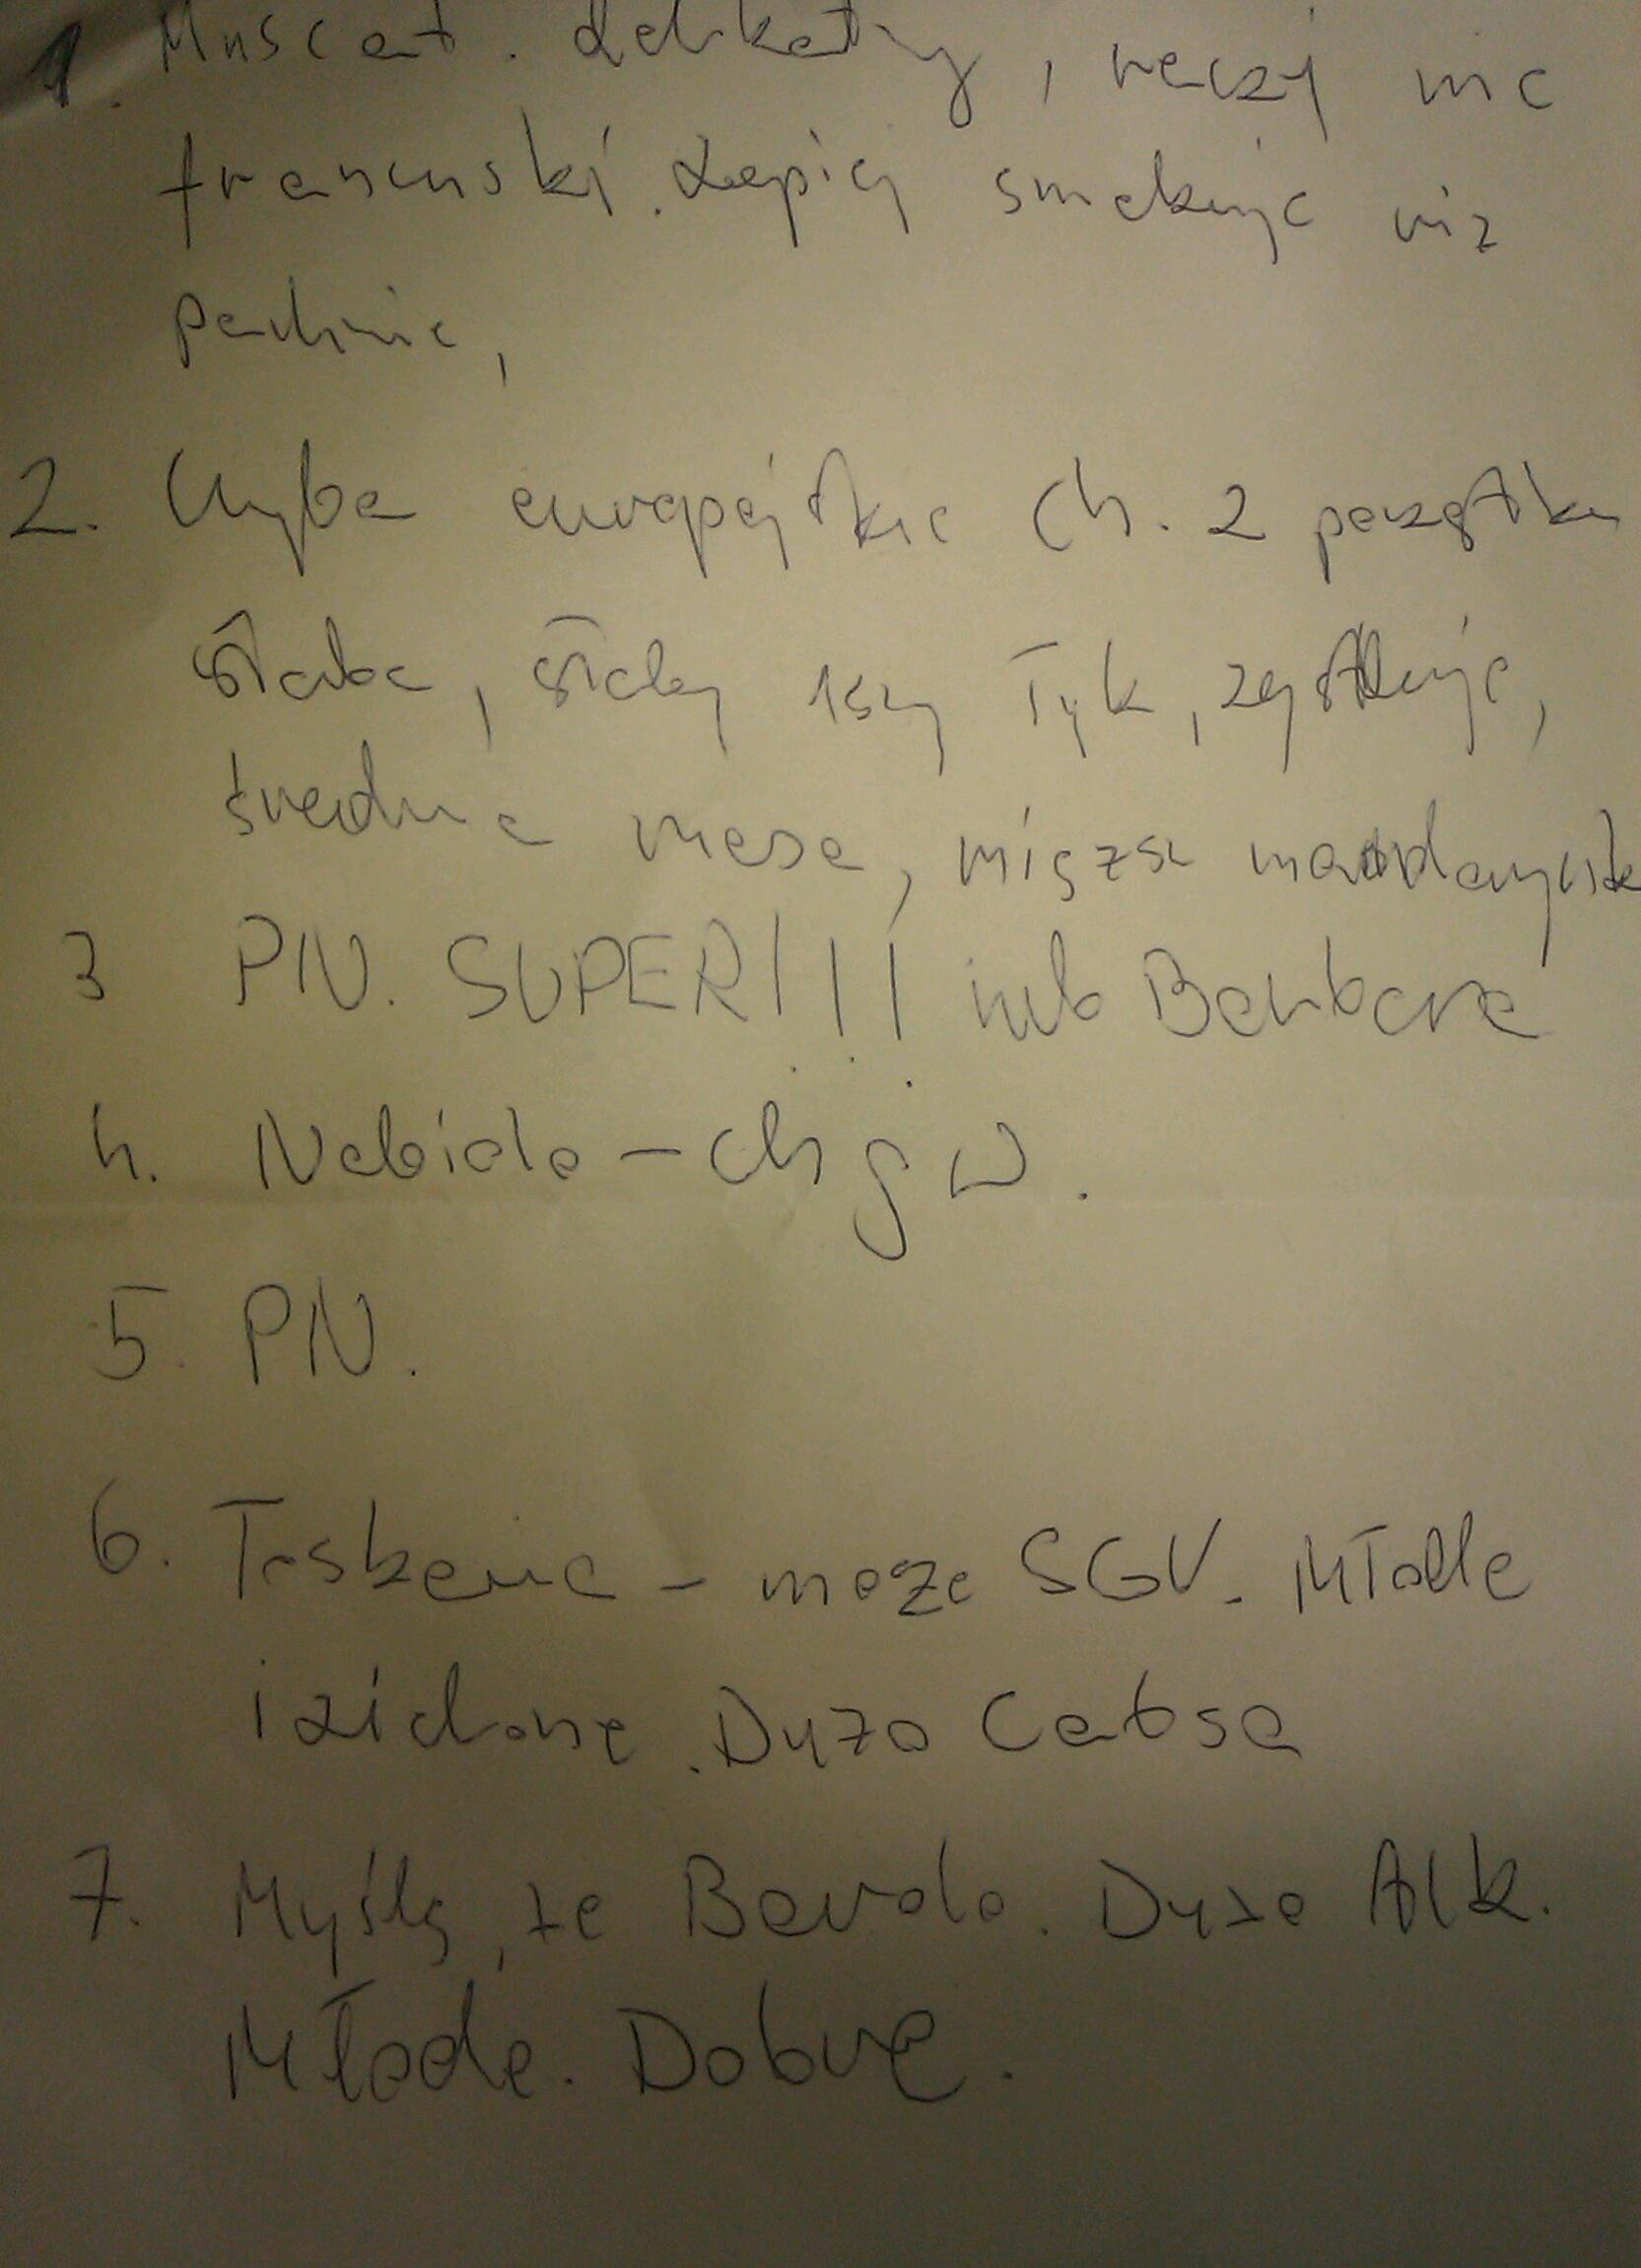 1. Muscat. Delikatny, raczej nie
francuski. Lepiej smakuje niż
pachnie,
2. Chyba europejskie Ch. Z początku
słabe, słaby 1szy łyk, zyskuje,
średnia masa, miąższ mandarynk
3 PN. SUPER!!! lub Barbera
4. Nebiolo - ch g w.
5. PN.
6. Toskania - może SGV. Młode
i zielone. Dużo Cabsa
7. Myślę, że Barolo. Dużo Alk.
Młode. Dobre.